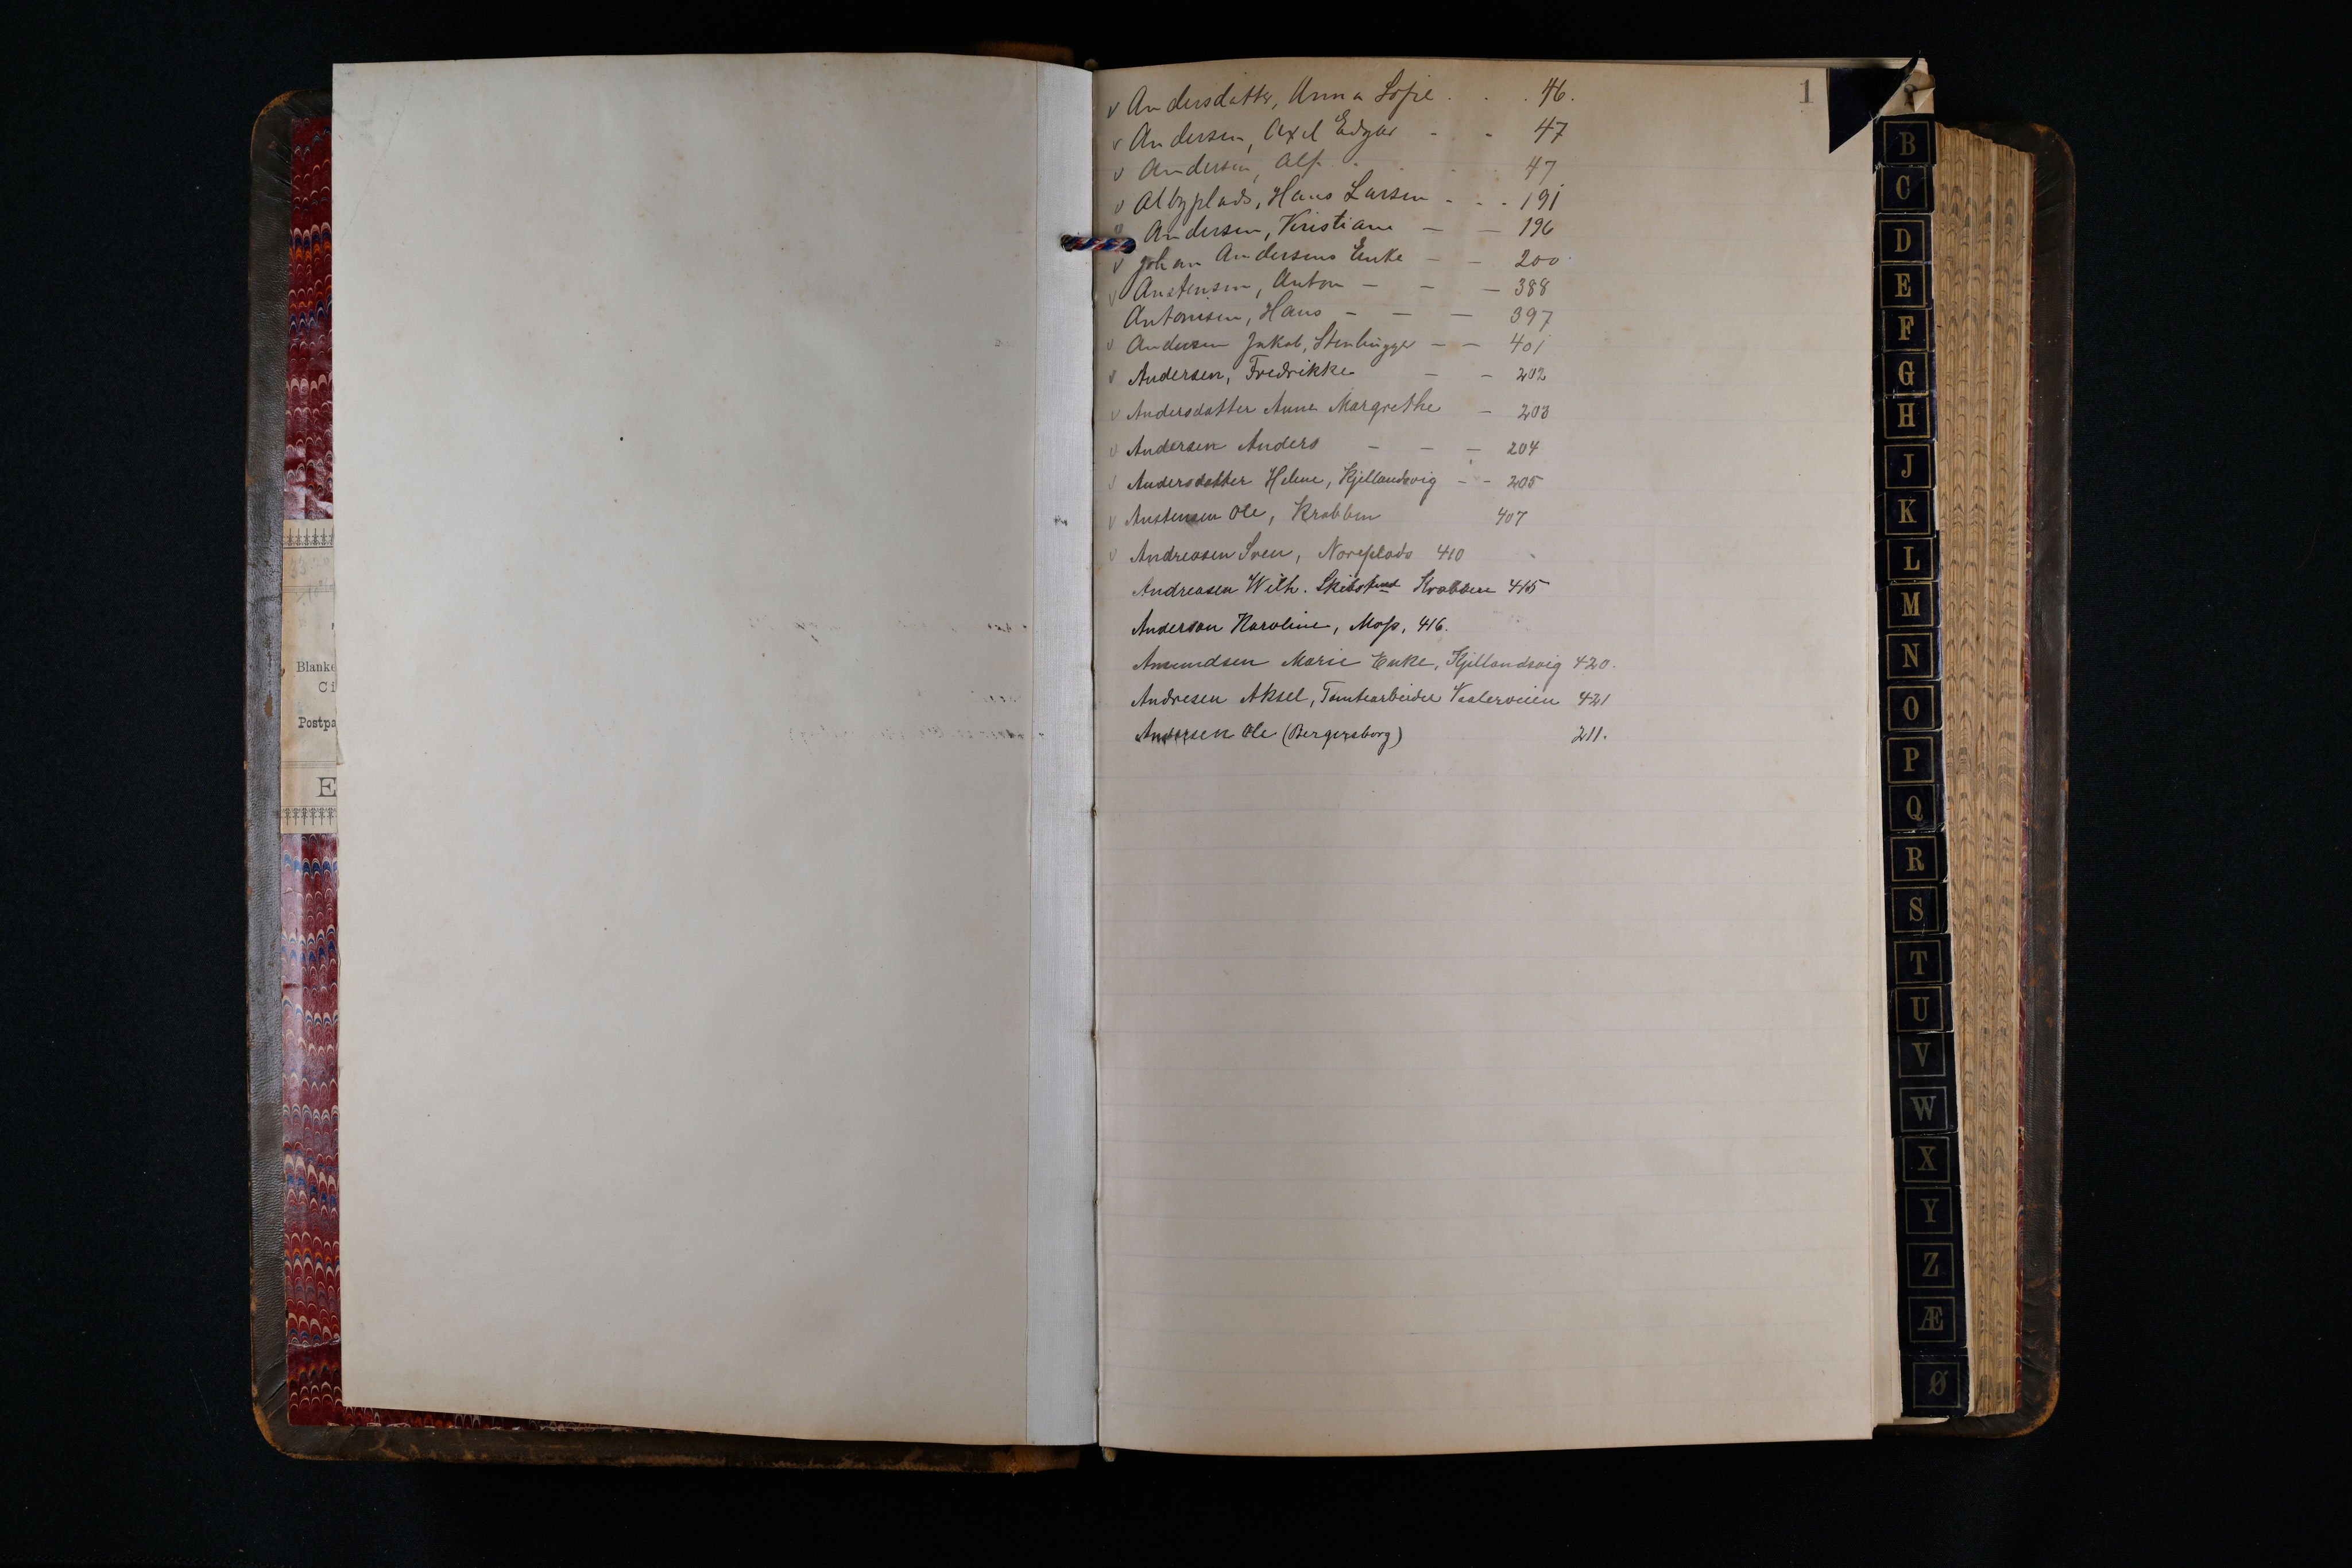 1
v Andersdatter, Anna Sofie . . . 46.
v Andersen, Axel Edgar - - 47
v Andersen, Alf. - 47
v Albyplads, Hans Larsen - - - 191
v Andersen, Kristiane — — 196
v Johan Andersens Enke — — 200
v Austensen, Anton — — — 388
Antonisen, Hans — — — 397
v Andersen Jakob, Stenhugger — — 401
v Andersen, Fredrikke — — 202
v Andersdatter Anne Margrethe — 203
v Andersen Anders — — — 204
v Andersdatter Helene, Kjellandsvig - - 205
v Austensen Ole, Krabben 407
v Andreasen Sven, Noreplads 410
Andreasen Wilh. Krabben 415
Anderson Karoline, Moss, 416.
Amundsen Marie Enke, Kjellandsvig 420.
Andresen Aksel, Tomtearbeider Vaalerveien 421
Andersen Ole (Bergersborg) 211.
Blanke
Ci
Postpa
E
B
C
D
E
F
G
H
J
K
L
M
N
O
P
Q
R
S
T
U
V
W
X
Y
Z
Æ
Ø